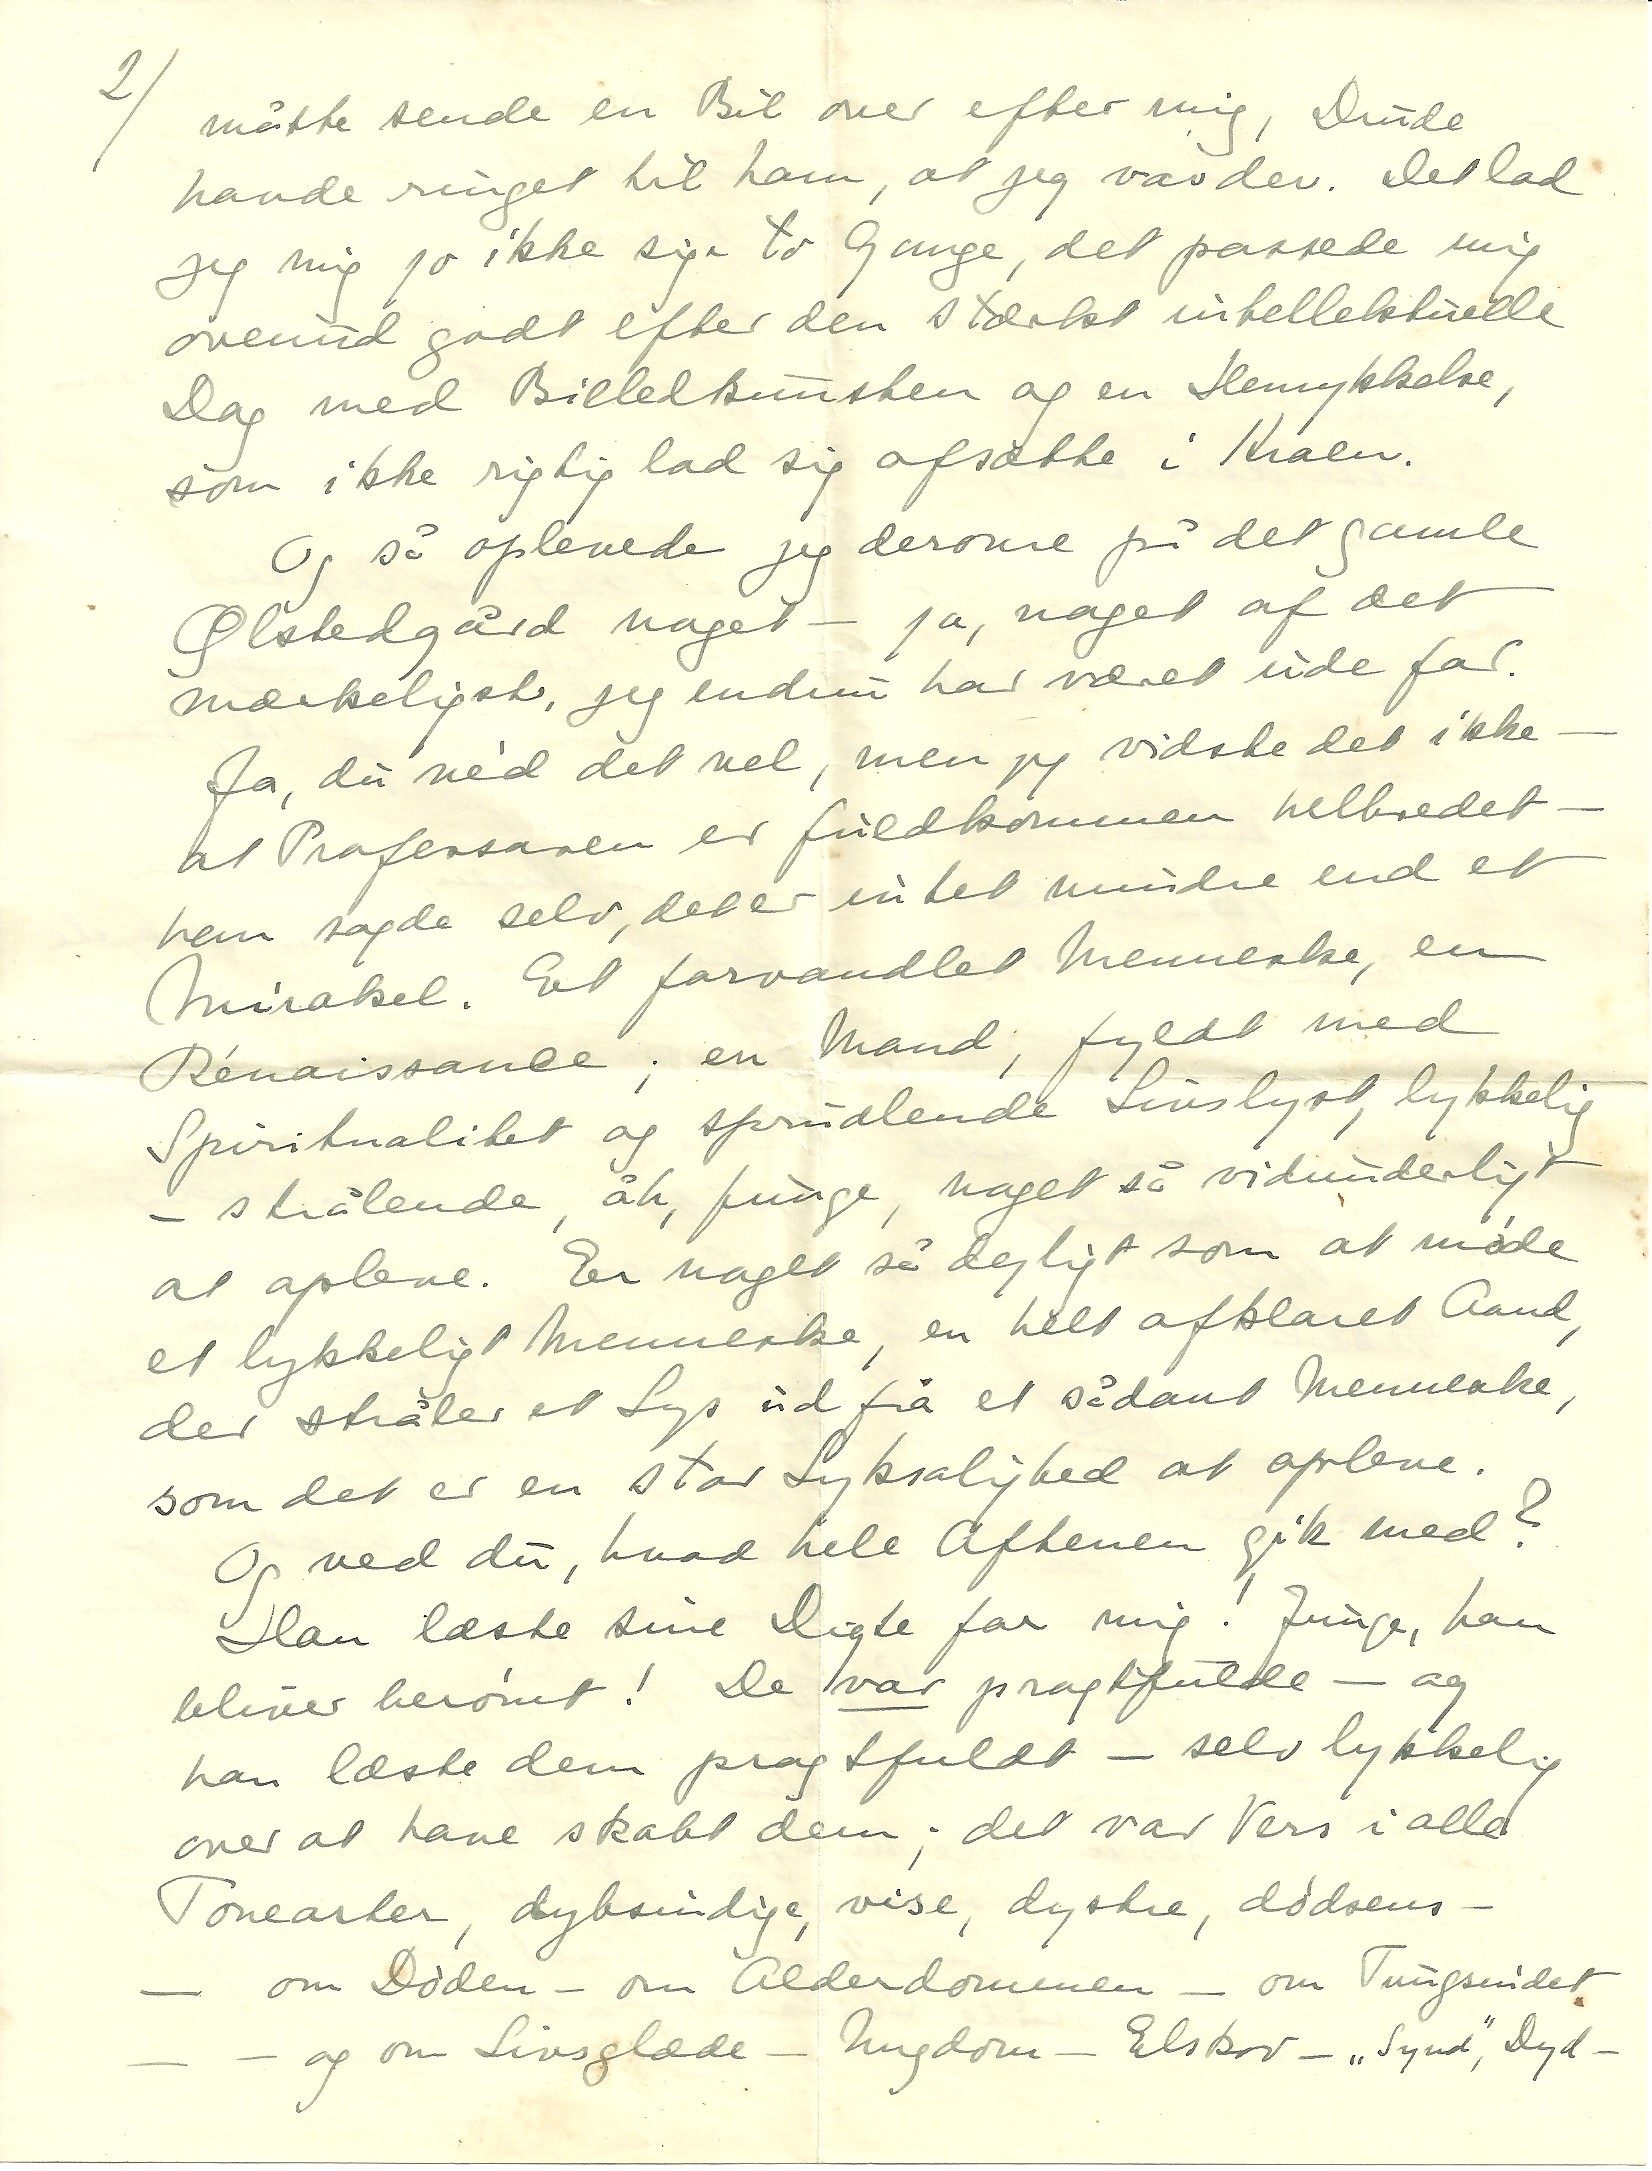 2/
måtte sende en Bil over efter mig, Drude
havde ringet til ham, at jeg var der. Det lod
jeg mig jo ikke sige to Gange, det passede mig
ovenud godt efter den stærkt intellektuelle
Dag med Billedkunsten og en Henrykkelse,
som ikke rigtig lod sig afsætte i Kroen.
Og så oplevede jeg derovre på det gamle
Ølstedgård noget – ja, noget af det
mærkeligste, jeg endnu har været ude for.
Ja, du véd det vel, men jeg vidste det ikke –
at Professoren er fuldkommen helbredet –
han sagde selv, det er intet mindre end et
Mirakel. Et forvandlet Menneske, en
Rénaissance; en Mand, fyldt med
Spiritualitet og sprudlende Livslyst, lykkelig
– strålende, åh, Junge, noget så vidunderligt
at opleve. Er noget så dejligt som at møde
et lykkeligt Menneske, en helt afklaret Aand,
der stråler et Lys ud fra et sådant Menneske,
som det er en stor Lyksalighed at opleve.
Og ved du, hvad hele Aftenen gik med?
Han læste sine Digte for mig! Junge, han
bliver berømt! De var pragtfulde – og
han læste dem pragtfuldt – selv lykkelig
over at have skabt dem; det var Vers i alle
Tonearter, dybsindige, vise, dystre, dødsens –
– om Døden – om Alderdommen – om Tungsindet
– – og om Livsglæde – Ungdom – Elskov – „Synd", Dyd –